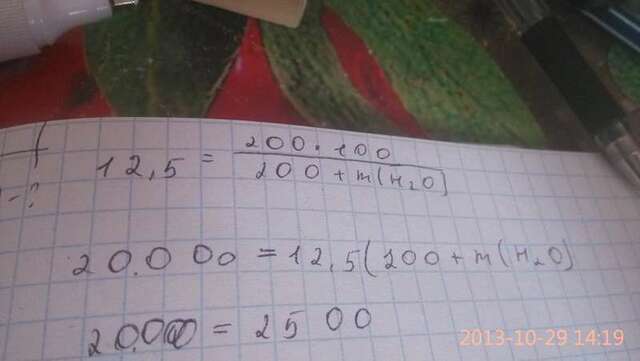 12,5 = 200·100 / 200 + m(H₂O)
-?
20.000 = 12,5(200 + m(H₂O)
20.000 = 2500
2013-10-29 14:19